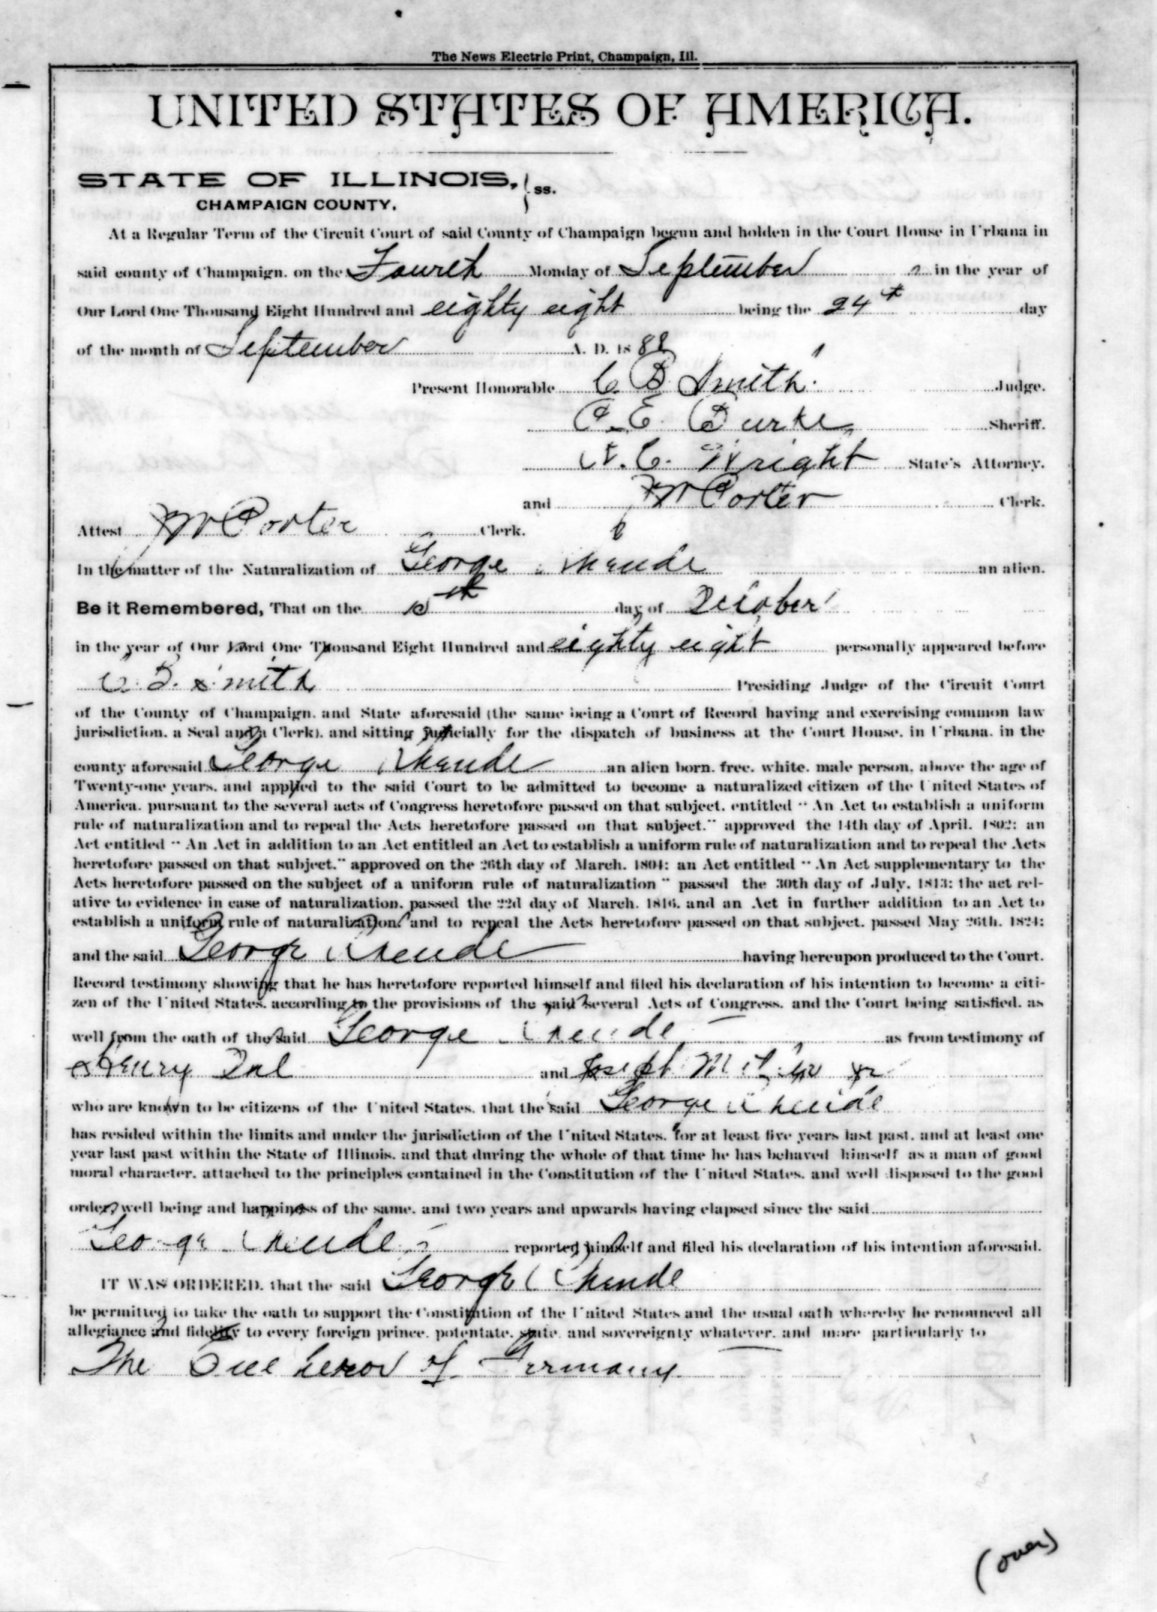 The News Electric Print, Champaign, Ill.
UNITED STATES OF AMERICA.
STATE OF ILLINOIS, } ss.
CHAMPAIGN COUNTY.
At a Regular Term of the Circuit Court of said County of Champaign begun and holden in the Court House in Urbana in
said county of Champaign, on the Fourth Monday of September in the year of
Our Lord One Thousand Eight Hundred and eighty eight being the 24th day
of the month of September A. D. 1888
Present Honorable C B Smith Judge.
E. Burke Sheriff.
C. Wright State's Attorney.
and Porter Clerk.
Attest Porter Clerk.
In the matter of the Naturalization of George an alien.
Be it Remembered, That on the day of October
in the year of Our Lord One Thousand Eight Hundred and eighty eight personally appeared before
C. B. Smith Presiding Judge of the Circuit Court
of the County of Champaign, and State aforesaid (the same being a Court of Record having and exercising common law
jurisdiction, a Seal and a Clerk), and sitting judicially for the dispatch of business at the Court House, in Urbana, in the
county aforesaid George an alien born, free, white, male person, above the age of
Twenty-one years, and applied to the said Court to be admitted to become a naturalized citizen of the United States of
America, pursuant to the several acts of Congress heretofore passed on that subject, entitled "An Act to establish a uniform
rule of naturalization and to repeal the Acts heretofore passed on that subject." approved the 14th day of April, 1802; an
Act entitled "An Act in addition to an Act entitled an Act to establish a uniform rule of naturalization and to repeal the Acts
heretofore passed on that subject," approved on the 26th day of March, 1804; an Act entitled "An Act supplementary to the
Acts heretofore passed on the subject of a uniform rule of naturalization" passed the 30th day of July, 1813; the act rel-
ative to evidence in case of naturalization, passed the 22d day of March, 1816, and an Act in further addition to an Act to
establish a uniform rule of naturalization and to repeal the Acts heretofore passed on that subject, passed May 26th, 1824;
and the said George having hereupon produced to the Court,
Record testimony showing that he has heretofore reported himself and filed his declaration of his intention to become a citi-
zen of the United States, according to the provisions of the said several Acts of Congress, and the Court being satisfied, as
well from the oath of the said George as from testimony of
Henry and Joseph
who are known to be citizens of the United States, that the said George
has resided within the limits and under the jurisdiction of the United States, for at least five years last past, and at least one
year last past within the State of Illinois, and that during the whole of that time he has behaved himself as a man of good
moral character, attached to the principles contained in the Constitution of the United States, and well disposed to the good
order, well being and happiness of the same, and two years and upwards having elapsed since the said
George reported himself and filed his declaration of his intention aforesaid.
IT WAS ORDERED, that the said George
be permitted to take the oath to support the Constitution of the United States and the usual oath whereby he renounced all
allegiance and fidelity to every foreign prince, potentate, state, and sovereignty whatever, and more particularly to
The of Germany
(over)